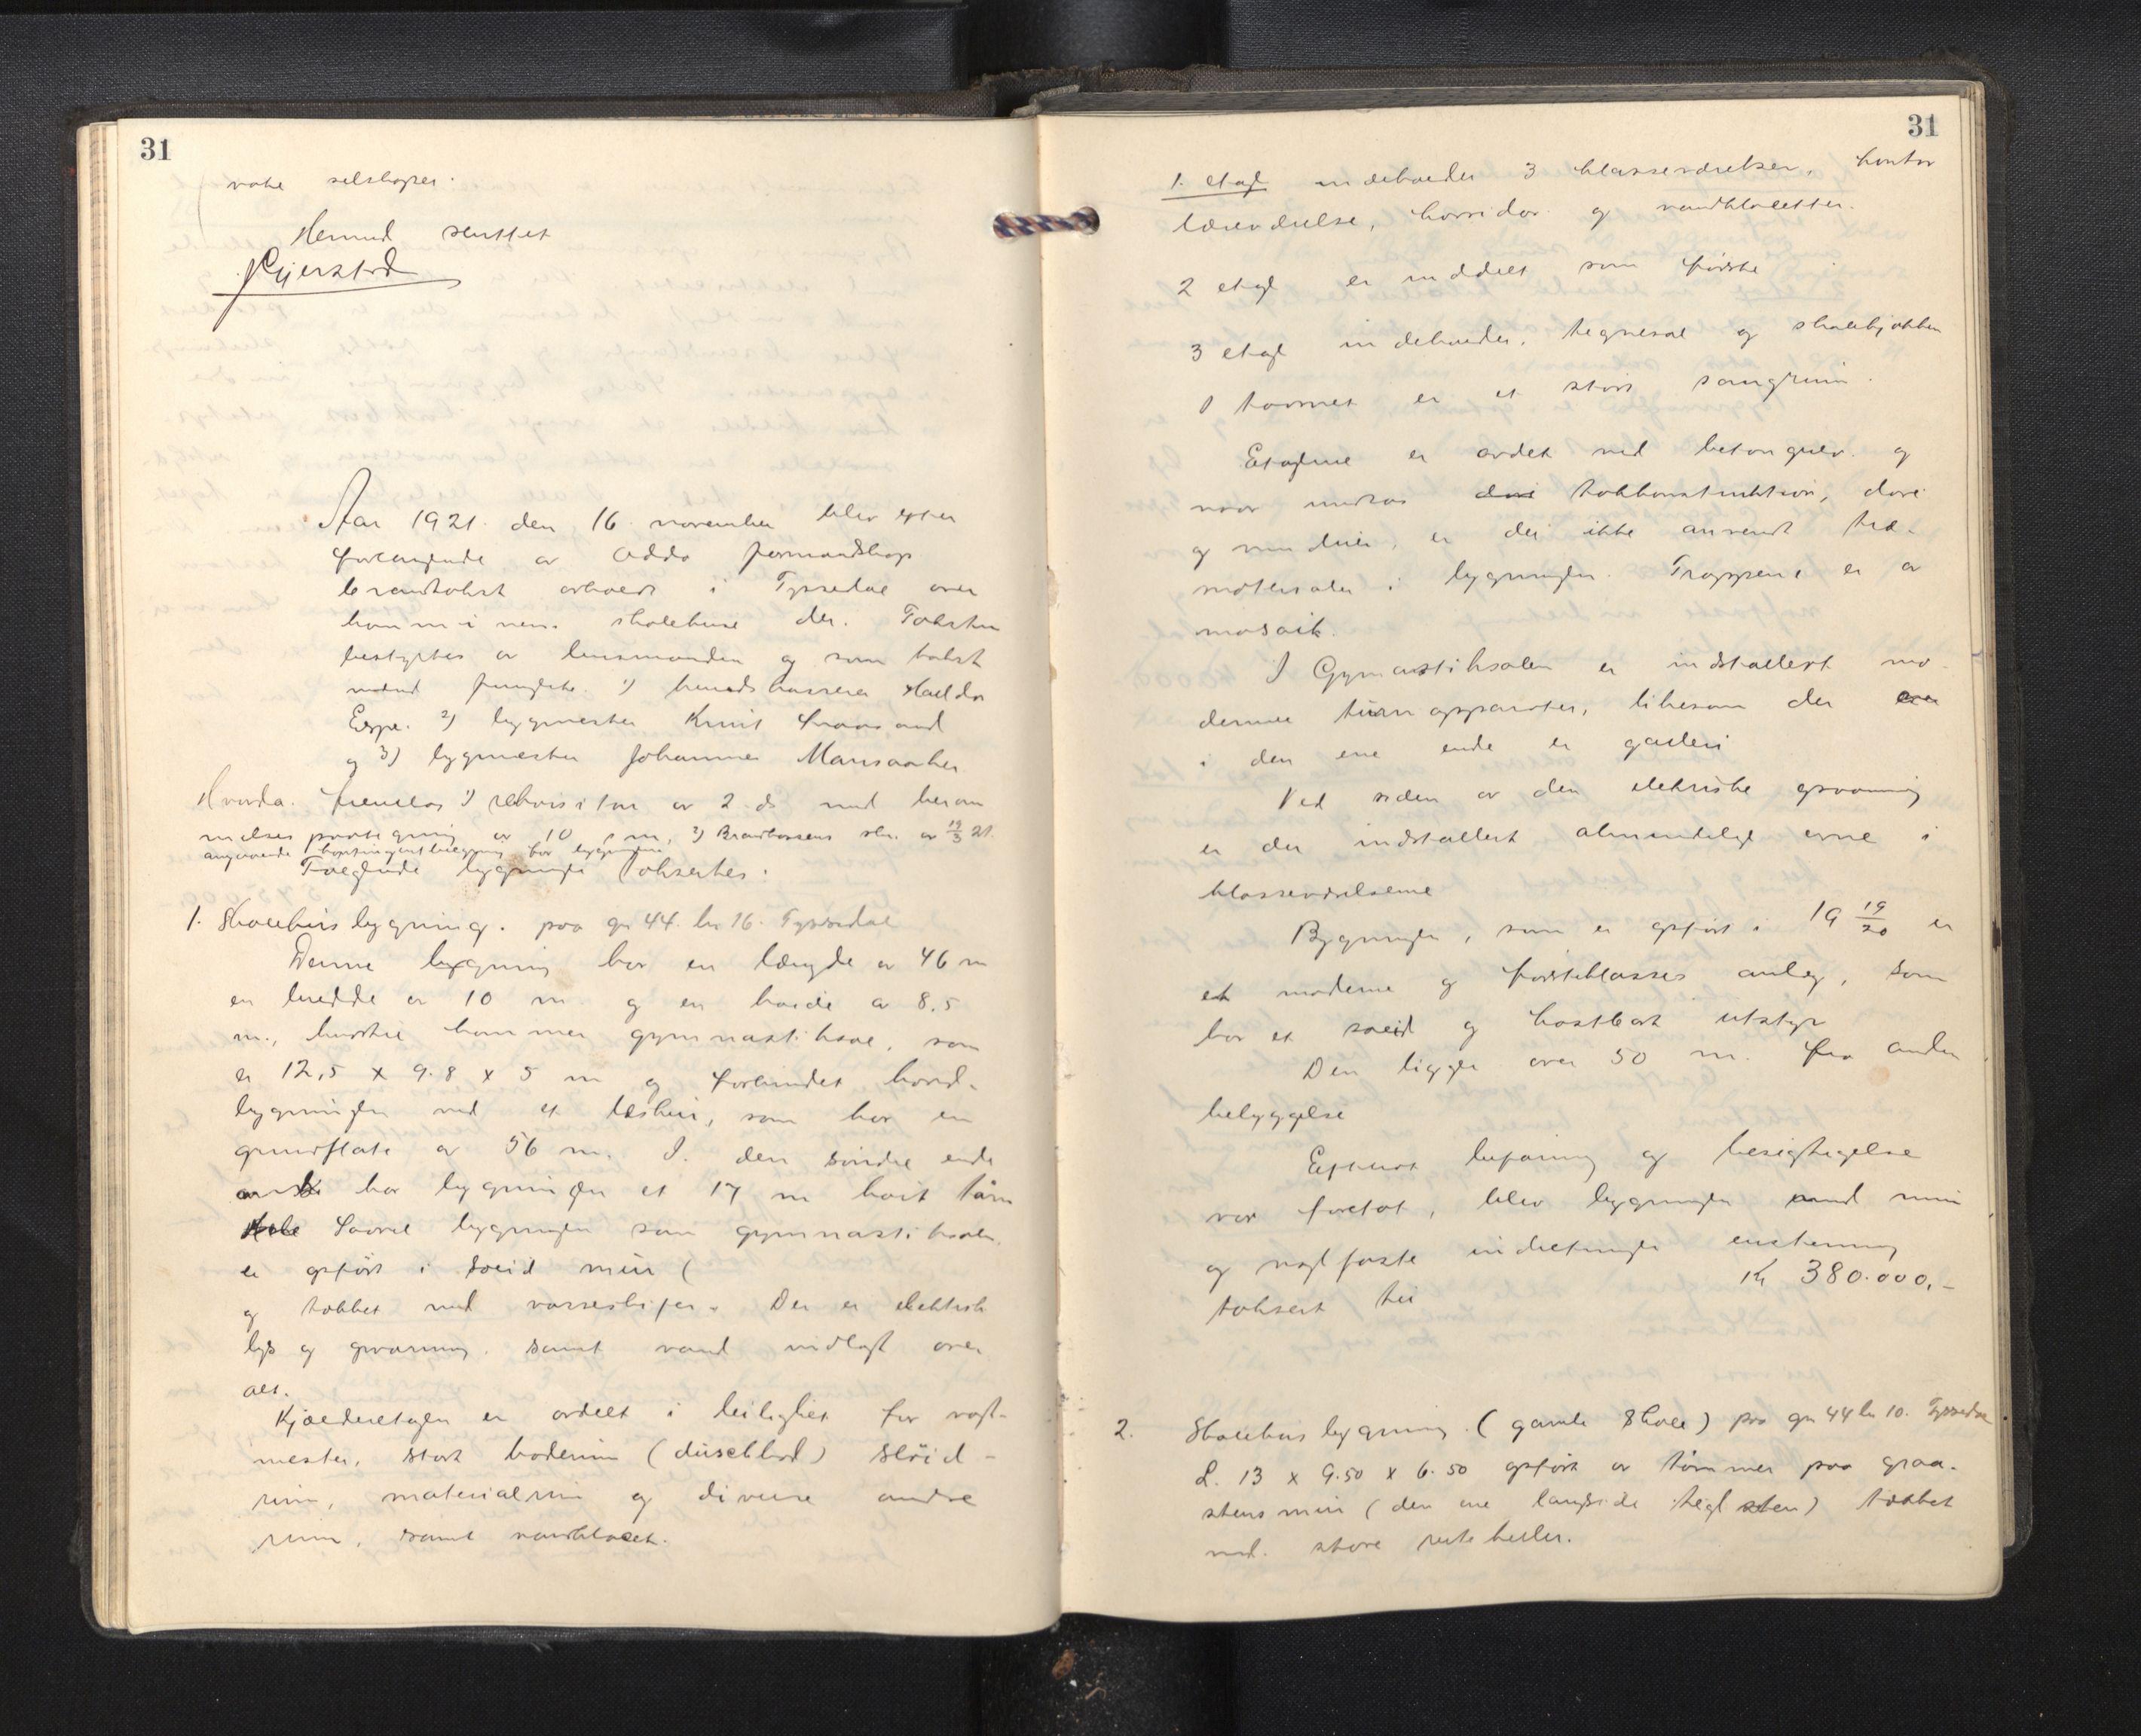 31
vate selskaper.
Hermed sluttet
Aar 1921 den 16 november blev efter
forlangende av Odda formandskap
brandtakst avholdt i Tyssedal over
kommunens skolehuse der. Taksten
bestyrtes av lensmanden og som takst
mænd fungerte 1) herredskasserer Haldor
Espe. 2) bygmester Knut
og 3) bygmester Johannes
Hvorda fremlas 1) rekvisition av 2 ds med beram
melses paategning av 10 s m, 2) Brandkassens skr. av 19/3 21.
angaaende for bygningene
Følgende bygninger taksertes:
1. Skolehusbygning. paa gr 44 br 16. Tyssedal
Denne bygning har en længde av 46 m
en bredde av 10 m og en høide av 8,5
m., hertil kommer gymnastiksal, som
er 12,5 x 9.8 x 5 m og forbundet hoved-
bygningen med et leskur, som har en
grundflate av 56 m. I den søndre ende
har bygningen et 17 m høit tårn
Saavel bygningen som gymnastiksalen
er opført i solid mur (
og tækket med vosseskifer. Der er elektrisk
lys og opvarming samt vand indlagt over
alt.
Kjælderetagen er avdelt i leilighet for vagt-
mester, stort baderum (duschbad) sløid-
rum, materialrum og diverse andre
rum, samt vandkloset.
31
1. etage indeholder 3 klasseværelser, kontor
læreværelse, korridor og vandklosetter.
2 etage er inddelt som første
3 etage indeholder, tegnesal og skolekjøkken
I taarnet er et stort
Etagene er avdelt med betongulv og
naar undtas takkonstruktion, dører
og vinduer, er der ikke anvendt træ-
materialer i bygningen. Trappene er av
mosaik.
I Gymnastiksalen er indstallert mo-
derne turnapparater, likesom der
i den ene ende er galleri
Ved siden av den elektriske opvarming
er der indstallert almindelige ovne i
klasseværelserne
Bygningen, som er opført i 19 19/20 er
et moderne og førsteklasses anlæg, som
har et solid og kostbart utstyr
Den ligger over 50 m. fra anden
bebyggelse
Efterat befaring og besigtigelse
var foretat, blev bygningen med mur
og naglfaste indretninger enstemmig
taksert til Kr 380.000,-
2. Skolehusbygning. (gamle skole) paa gr 44 br 10. Tyssedal
L. 13 x 9.50 x 6.50 opført av tømmer paa graa-
stensmur (den ene langside teglsten) tækket
med store rute heller.